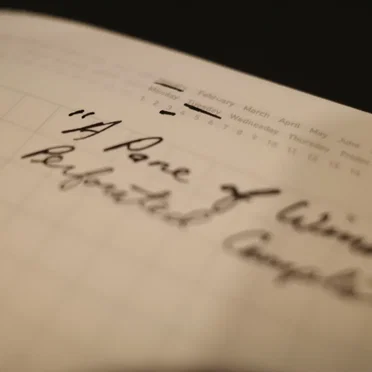 January February March April May June
Monday Tuesday Wednesday Thursday Friday
1 2 3 4 5 6 7 8 9 10 11 12 13 14
"A Pane of
Perforated